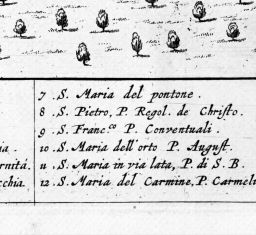 7 .S. Maria del pontone .
8 .S. Pietro, P. Regol. de Christo.
9 .S. Franc.co P. Conventuali .
ia . 10 .S. Maria dell'orto P. August.
rnità. 11 .S. Maria in via lata, P. di S. B.
cchia. 12 .S. Maria del Carmine, P. Carmeli